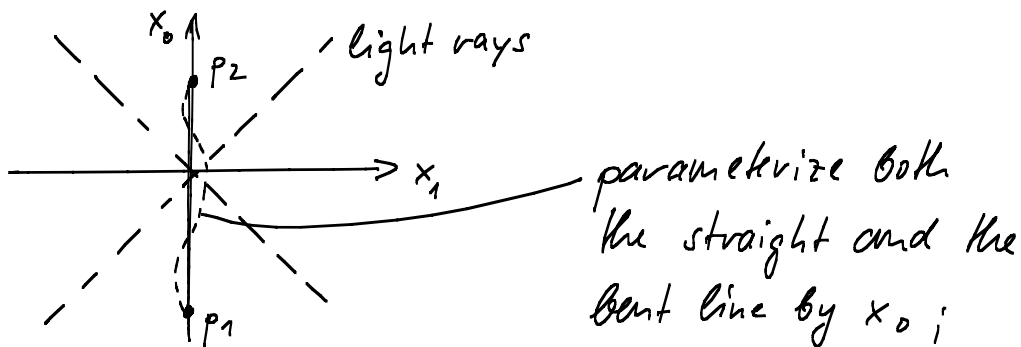 x₀
light rays
p2
x₁
parameterize both
the straight and the
bent line by x₀ ;
p1